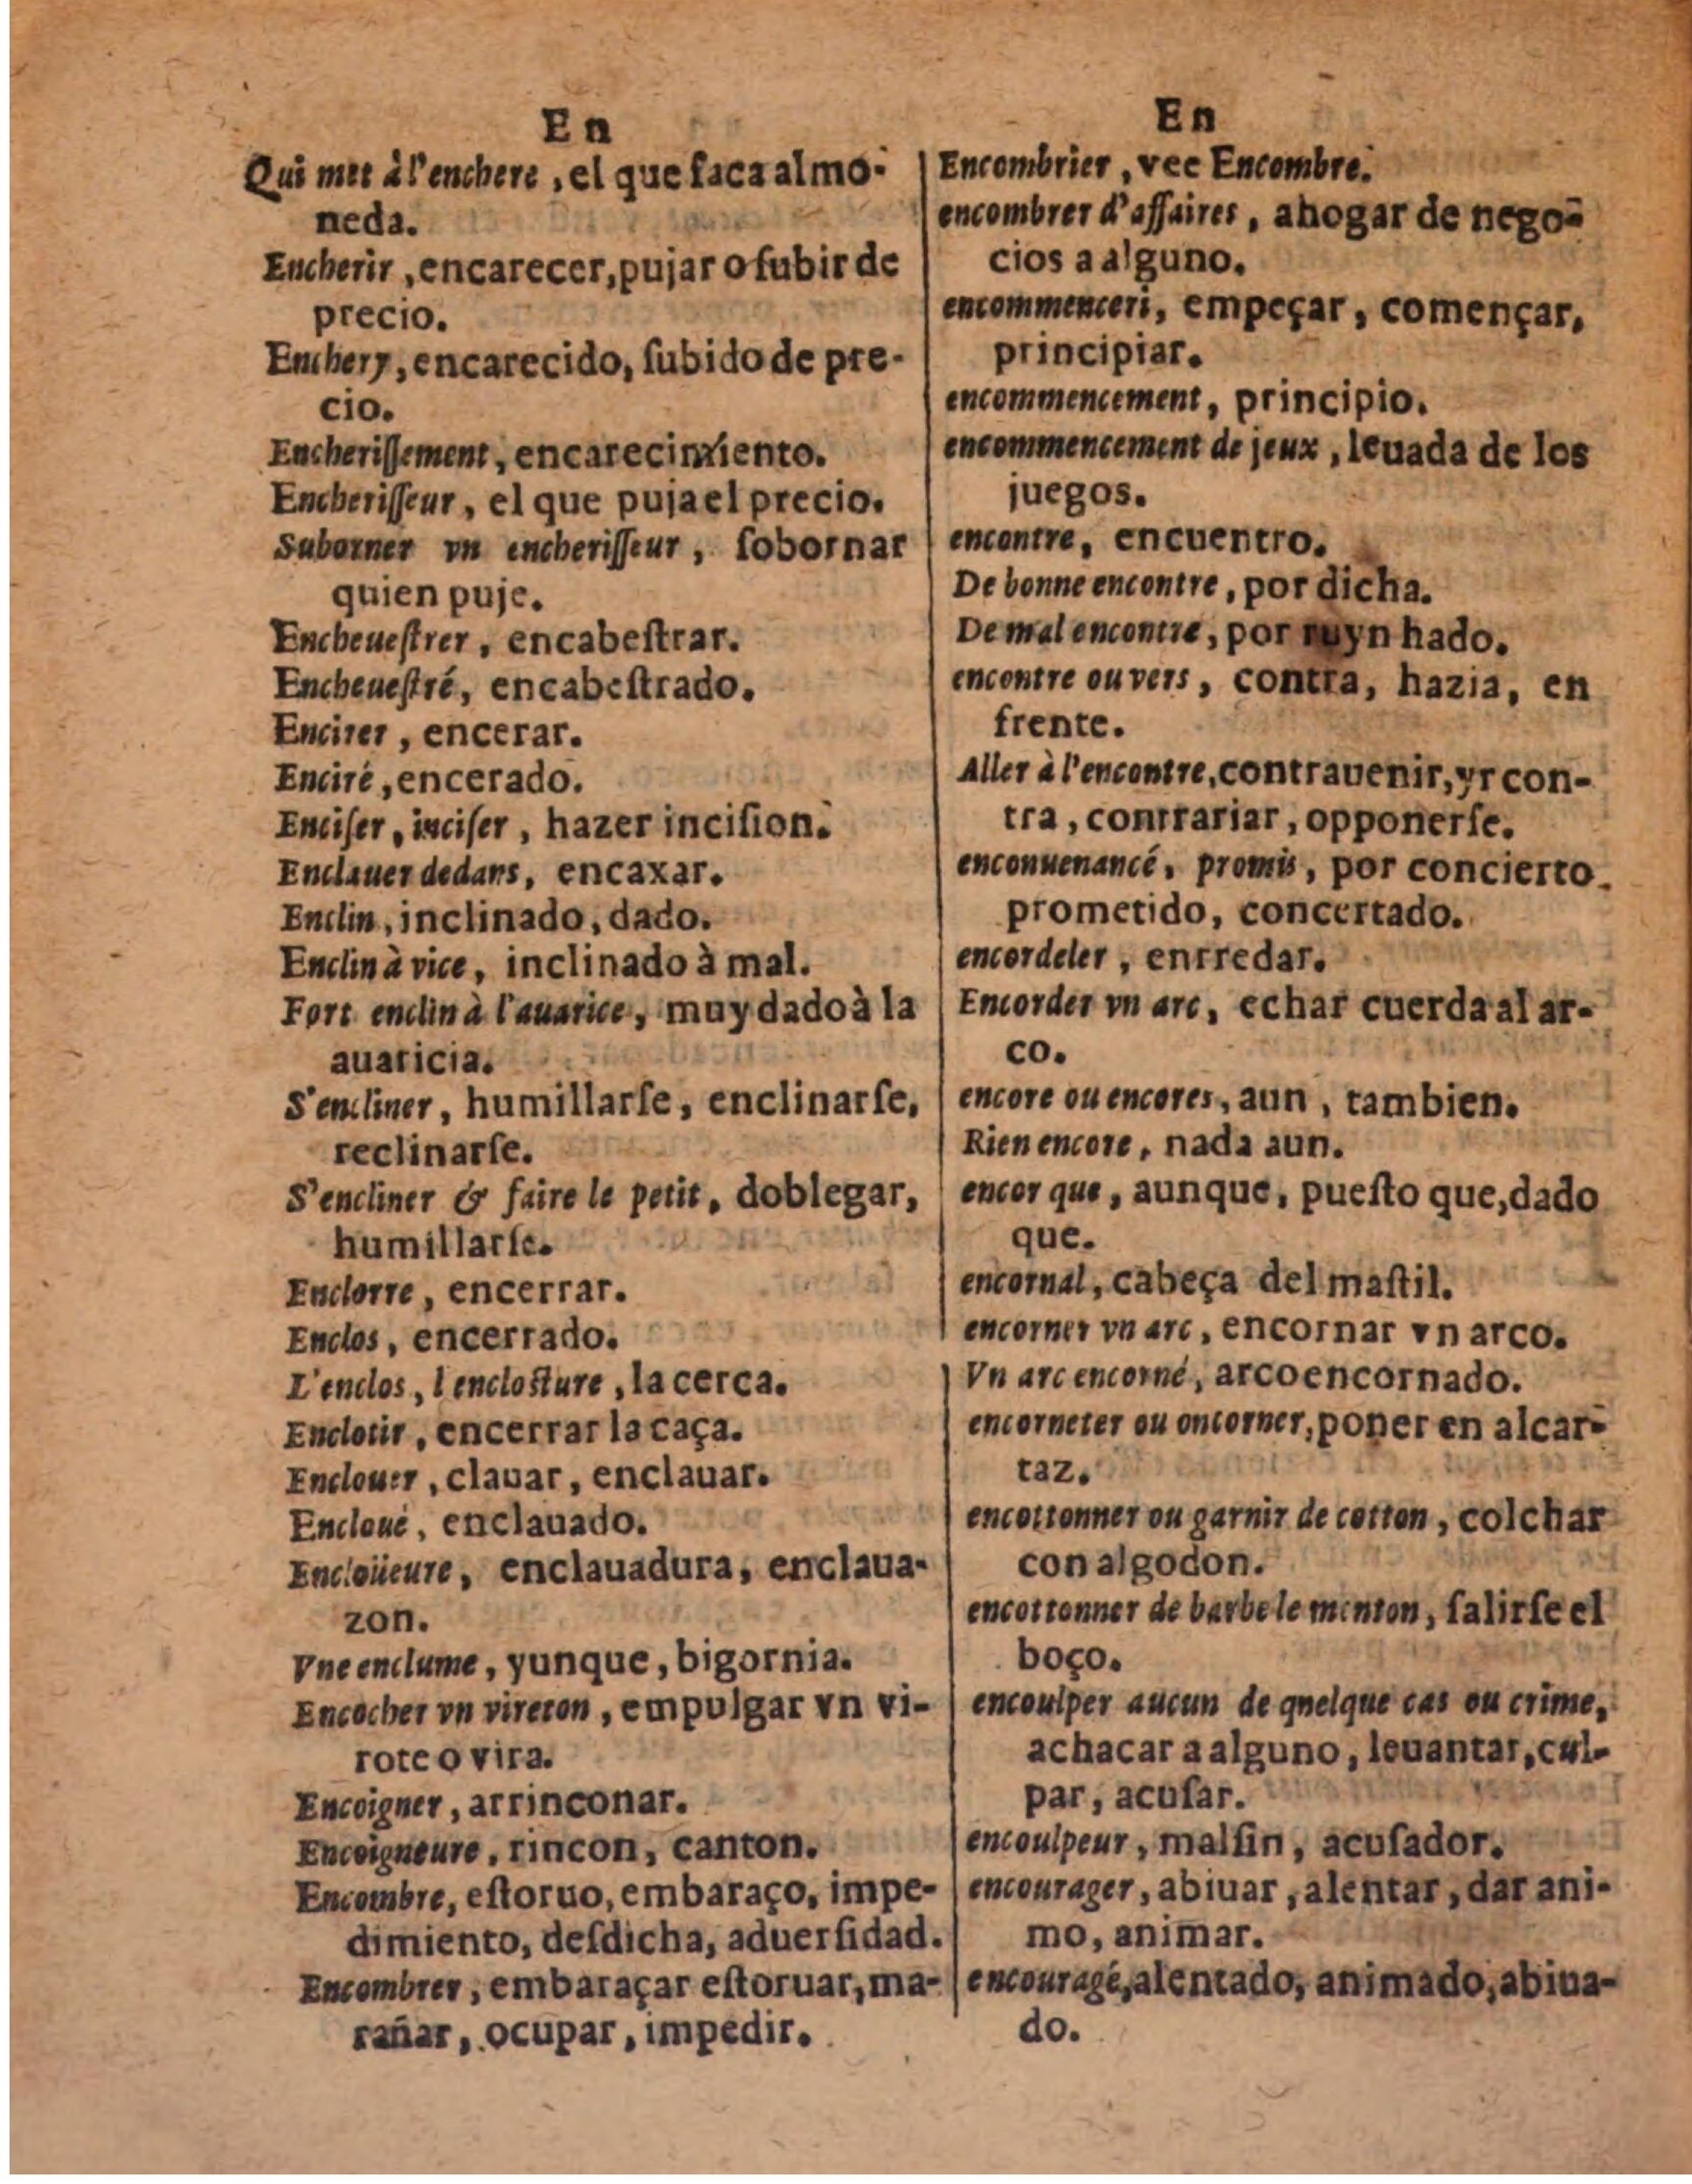 En
Qui met à l'enchere, el que ſaca almo-
neda.
Encherir, encarecer, pujar o ſubir de
precio.
Enchery, encarecido, ſubido de pre-
cio.
Encheriſſement, encarecimiento.
Encheriſſeur, el que puja el precio.
Suborner vn encheriſſeur, ſobornar
quien puje.
Encheueſtrer, encabeſtrar.
Encheueſtré, encabeſtrado.
Encirer, encerar.
Enciré, encerado.
Enciſer, inciſer, hazer inciſion.
Enclauer dedans, encaxar.
Enclin, inclinado, dado.
Enclin à vice, inclinado à mal.
Fort enclin à l'auarice, muy dado à la
auaricia.
S'encliner, humillarſe, enclinarſe,
reclinarſe.
S'encliner & faire le petit, doblegar,
humillarſe.
Enclorre, encerrar.
Enclos, encerrado.
L'enclos, l'encloſture, la cerca.
Enclotir, encerrar la caça.
Enclouer, clauar, enclauar.
Encloué, enclauado.
Encloüeure, enclauadura, enclaua-
zon.
Vne enclume, yunque, bigornia.
Encocher vn vireton, empulgar vn vi-
rote o vira.
Encoigner, arrinconar.
Encoigneure, rincon, canton.
Encombre, eſtoruo, embaraço, impe-
dimiento, deſdicha, aduerſidad.
Encombrer, embaraçar eſtoruar, ma-
rañar, ocupar, impedir.
En
Encombrier, vee Encombre.
encombrer d'affaires, ahogar de nego-
cios a alguno.
encommenceri, empeçar, començar,
principiar.
encommencement, principio.
encommencement de jeux, leuada de los
juegos.
encontre, encuentro.
De bonne encontre, por dicha.
De mal encontre, por ruyn hado.
encontre ou vers, contra, hazia, en
frente.
Aller à l'encontre, contrauenir, yr con-
tra, contrariar, opponerſe.
enconuenancé, promis, por concierto
prometido, concertado.
encordeler, enrredar.
Encorder vn arc, echar cuerda al ar-
co.
encore ou encores, aun, tambien.
Rien encore, nada aun.
encor que, aunque, pueſto que, dado
que.
encornal, cabeça del maſtil.
encorner vn arc, encornar vn arco.
Vn arc encorné, arco encornado.
encorneter ou oncorner, poner en alcar-
taz.
encottonner ou garnir de cotton, colchar
con algodon.
encottonner de barbe le menton, ſalirſe el
boço.
encoulper aucun de qnelque cas ou crime,
achacar a alguno, leuantar, cul-
par, acuſar.
encoulpeur, malſin, acuſador.
encourager, abiuar, alentar, dar ani-
mo, animar.
encouragé, alentado, animado, abiua-
do.